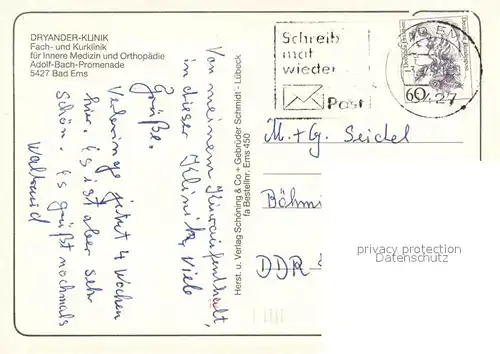 DRYANDER-KLINIK
Fach- und Kurklinik
für Innere Medizin und Orthopädie
Adolf-Bach-Promenade
5427 Bad Ems
Von meinem Kuraufenthalt,
in dieser Klinik, viele
Grüße.
Verbringe jetzt 4 Wochen
hier. Es ist aber sehr
schön. Es grüßt nochmals
Waltraud
Herst. u. Verlag Schöning & Co + Gebrüder Schmidt · Lübeck
fa Bestellnr. Ems 450
Schreib
mal
wieder
Post
60
M. + G. Seidel
Böhm
DDR
privacy protection
Datenschutz